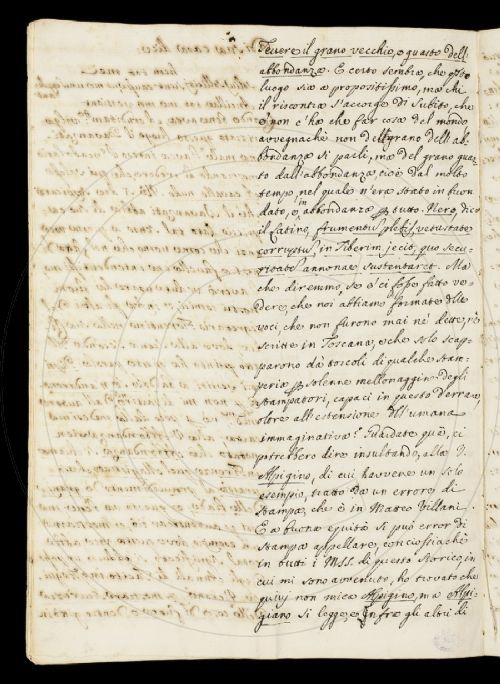 Tevere il grano vecchio, o guasto dell'
abbondanza. E certo sembra, che q.sto
luogo sia a propositissimo, ma chi
il riscontra s'accorge di subito, che
e' non c'ha che far cosa del mondo
avvegnachè non del grano dell'ab-
bondanza si parli, ma del grano guas-
to dall'abbondanza, cioè dal molto
tempo, nel quale n'era stato in buon
dato, o in abbondanza p tutto. Nero, dice
il latino, frumentū plebis vetustate
corruptū in Tiberim jecit, quo secu-
ritatē annonae sustentaret. Ma
che diremmo, se e' ci fosse fatto ve-
dere, che noi abbiamo formate delle
voci, che non furono mai nè dette, nè
scritte in Toscana, e che solo scap-
parono da' torcoli di qualche stam-
peria p solenne mellonaggine degli
stampatori, capaci in questo d'errare
oltre all'estensione dell'umana
immaginativa? Guardate quà, ci
potrebbero dire insultando, alla V.
Alpigino, di cui havvene un solo
esempio, tratto da un errore di
stampa, che è in Matteo Villani.
E a buona equità si può error di
stampa appellare, conciossiachè
in tutti i MSS. di questo Storico, in
cui mi sono avvenuto, ho trovato che
quivi non mica Alpigino, ma Alpi-
giano si legge, e infra gli altri di